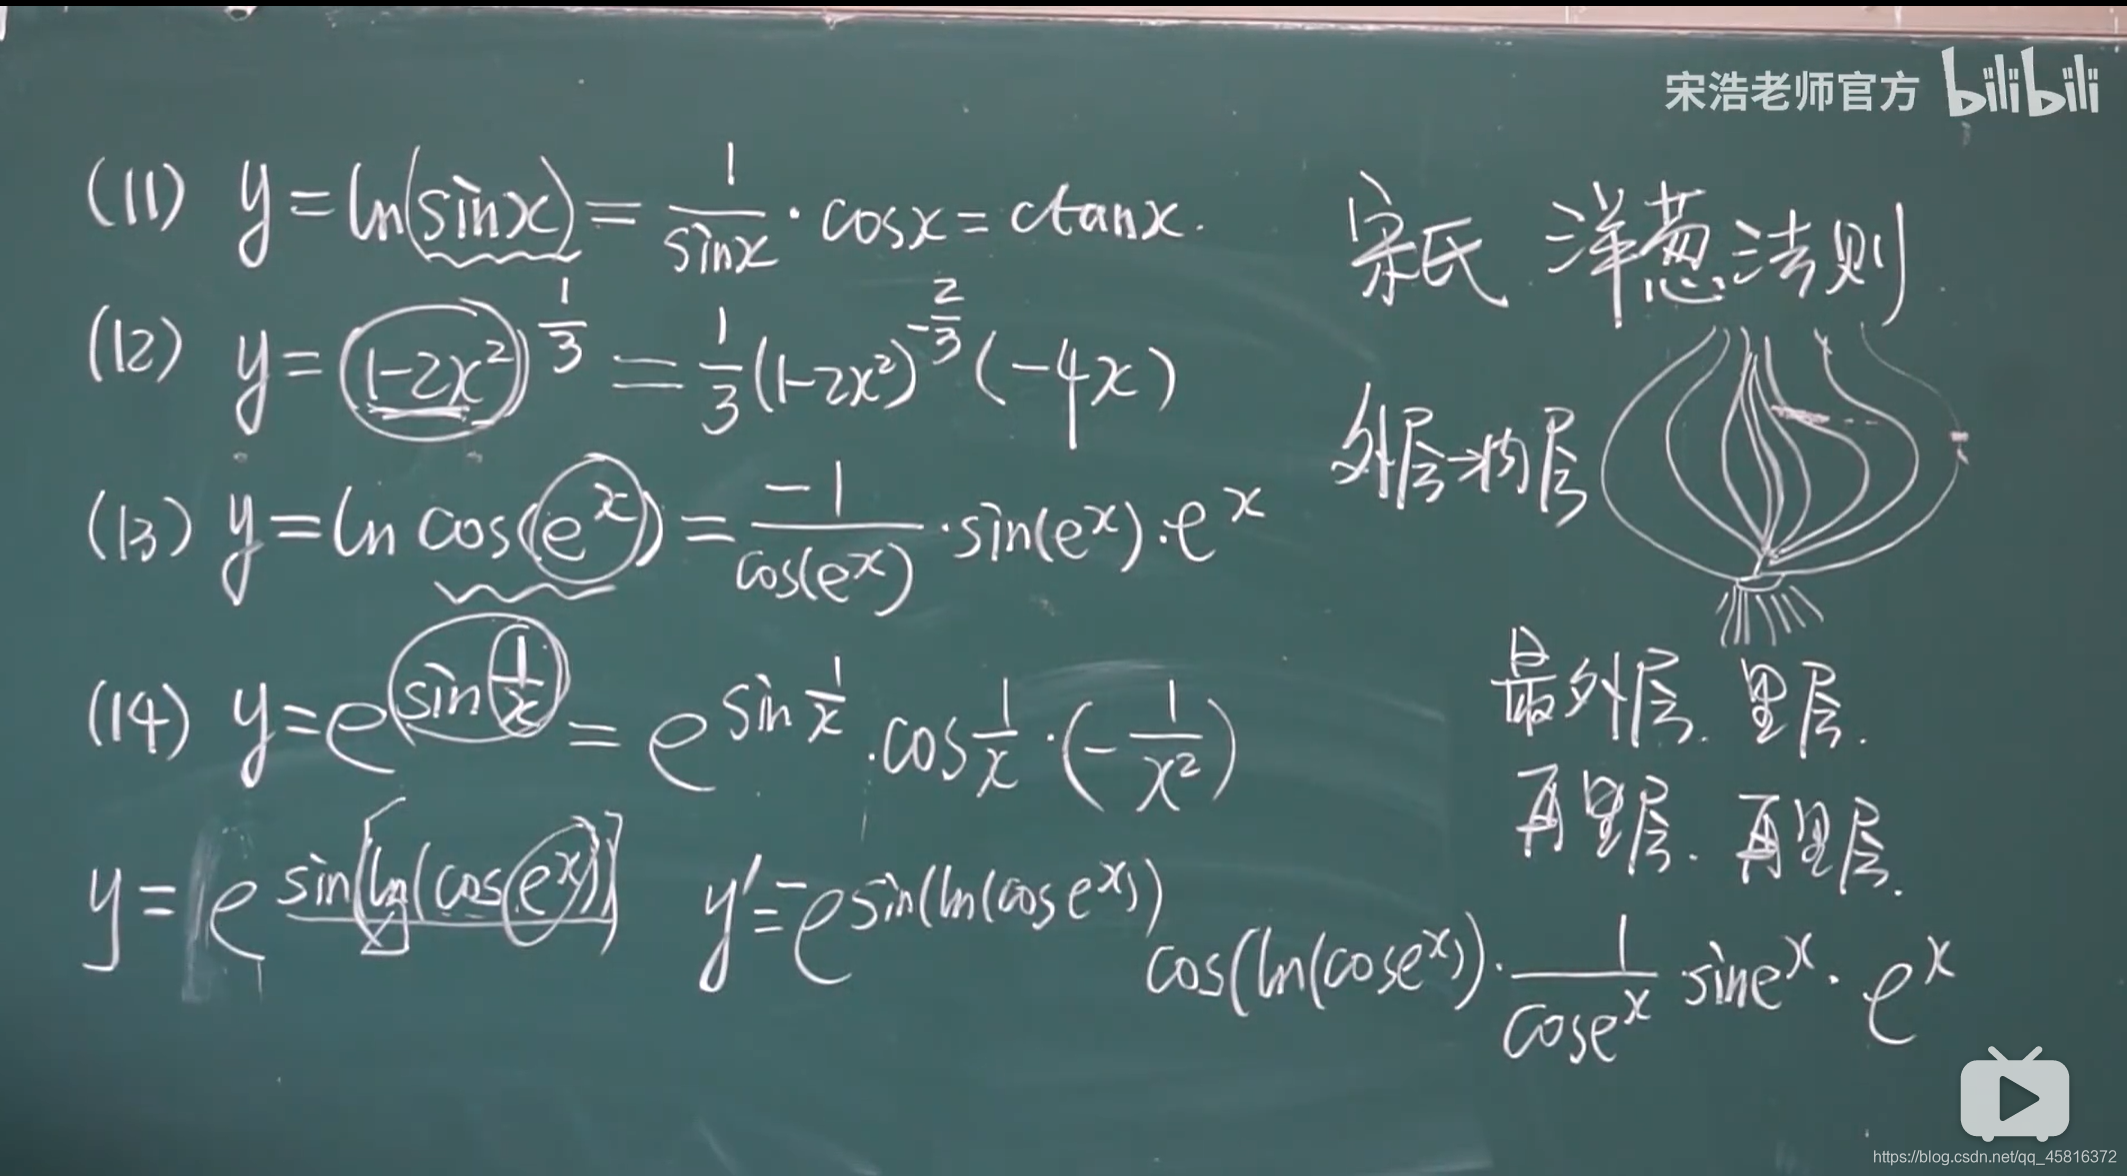 宋浩老师官方 bilibili
(11) y=ln(sinx)=1/sinx·cosx=ctanx.
(12) y=(1-2x²)^(1/3)=1/3(1-2x²)^(-2/3)(-4x)
(13) y=ln cos(e^x)=-1/cos(e^x)·sin(e^x)·e^x
(14) y=e^(sin 1/x)=e^(sin 1/x)·cos 1/x·(-1/x²)
y=e^(sin[ln(cos e^x)]) y'=-e^(sin(ln(cos e^x)))
cos(ln(cose^x))·1/cose^x·sine^x·e^x
宋氏 洋葱法则
外层→内层
最外层. 里层.
再里层. 再里层.
https://blog.csdn.net/qq_45816372